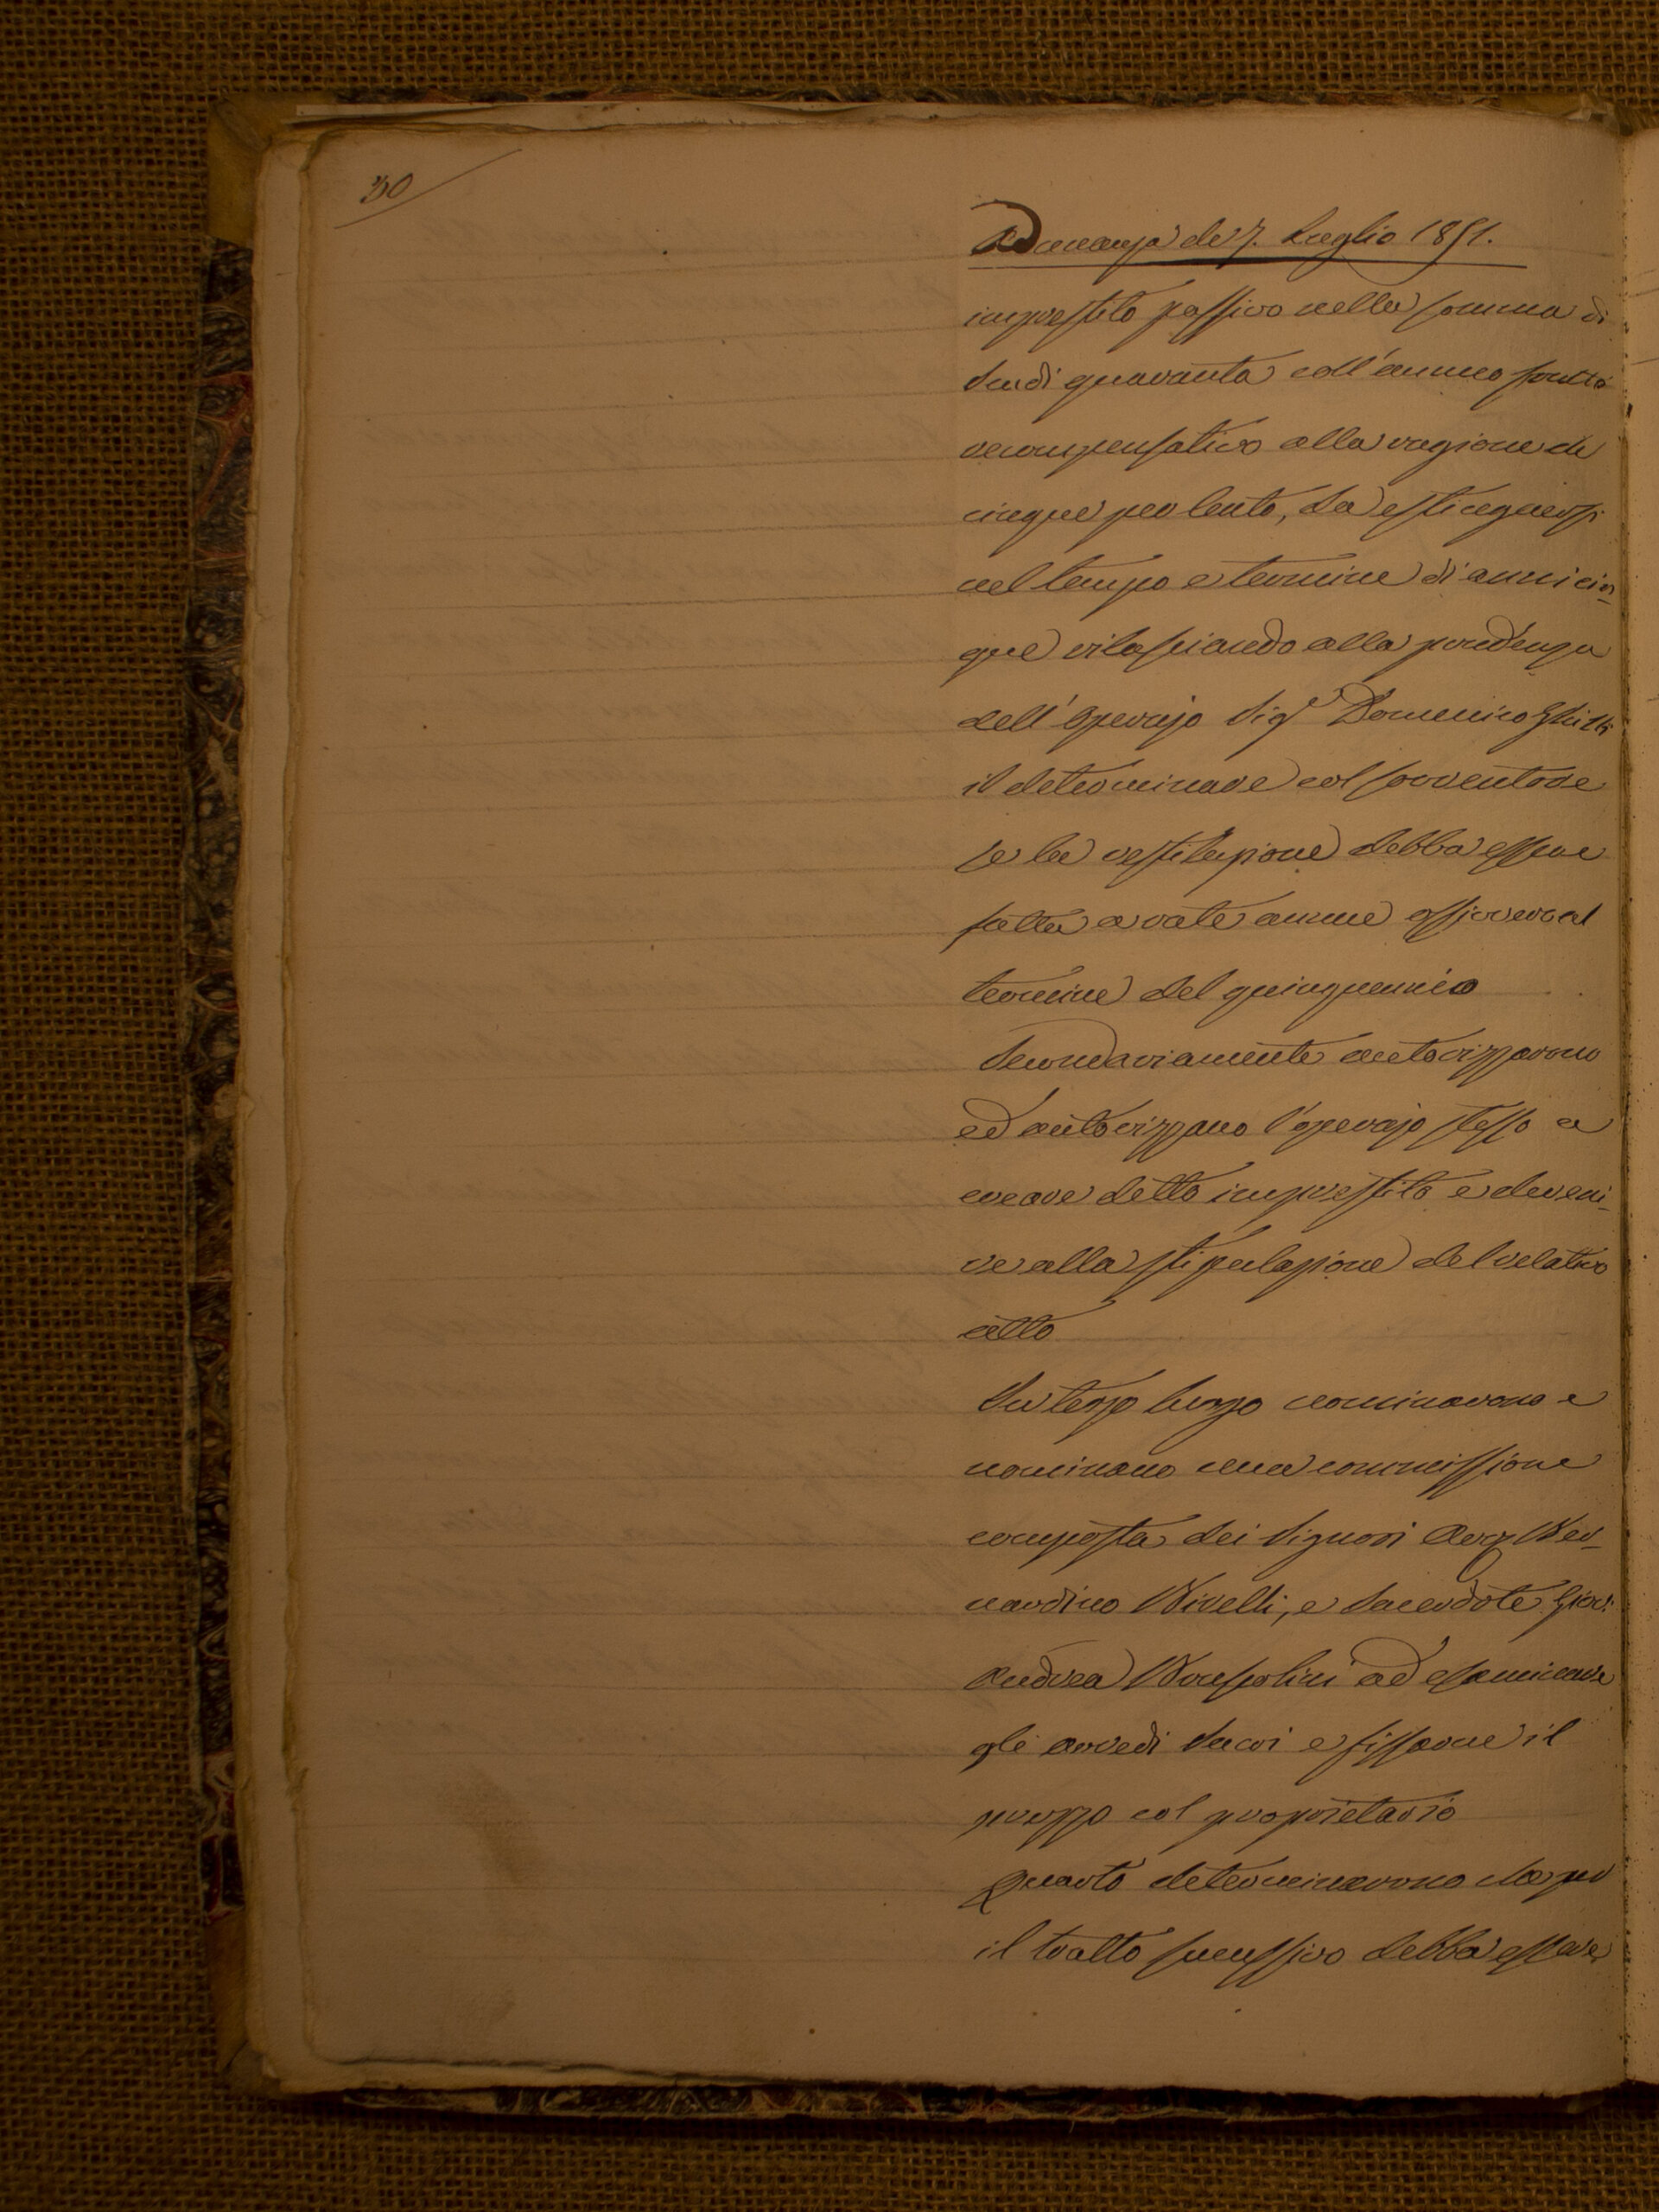 30
Adunanza de 7. Luglio 1851.
imprestito passivo nella somma di
Scudi quaranta coll'annuo frutto
recompensativo alla ragione de
cinque per Cento, da estinguersi
nel tempo e termine di anni cin_
que rilasciando alla prudenza
dell'Operajo Sigr Domenico
il determinare col sovventore
se la restituzione debba essere
fatta a rate annue ossivvero al
termine del quinquennio
Secondariamente autorizzarono
ed autorizzano l'operajo stesso a
creare detto imprestito e deveni_
re alla stipulazione del relativo
atto
In terzo luogo nominarono e
nominano una commissione
composta dei Signori Ber_
nardino Nivelli, e Sacerdote
Andrea ad esaminare
gli arredi Sacri e fissarne il
prezzo col proprietario
Quarto determinarono che per
il tratto successivo debba essere